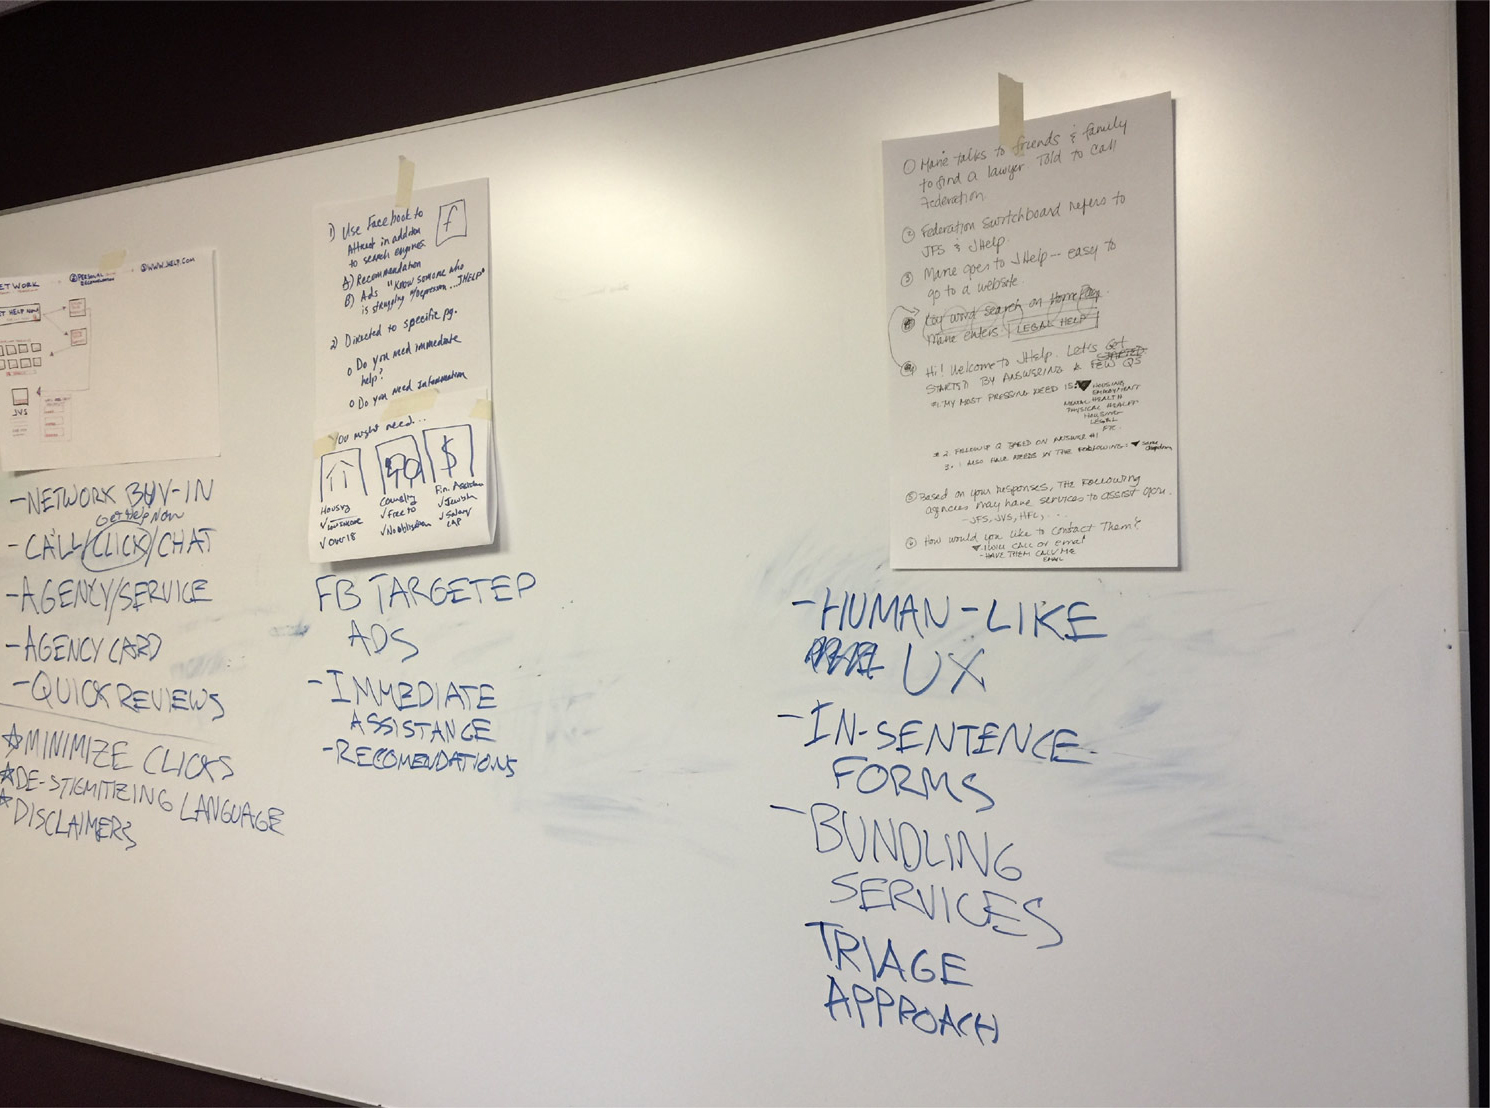 NETWORK
② PERSONAL
③ WWW.JHELP.COM
GET HELP NOW
JVS
-NETWORK BUY-IN
Get Help Now
-CALL/CLICK/CHAT
-AGENCY/SERVICE
-AGENCY CARD
-QUICK REVIEWS
☆MINIMIZE CLICKS
☆DE-STIGMITIZING LANGUAGE
☆DISCLAIMERS
1) Use Facebook to
Attract in addition
to search engines
f
A) Recommendation
B) Ads "Know someone who
is struggling w/depression...JHELP"
2) Directed to specific pg.
o Do you need immediate
help?
o Do you need Information
You might need...
$
Housing
✓ Over 18
Counseling
✓ Free to
✓ No obligation
Fin. Assistance
✓ Jewish
✓ Salary
cap
FB TARGETED
ADS
-IMMEDIATE
ASSISTANCE
-RECOMENDATIONS
① Marie talks to friends & family
to find a lawyer Told to call
Federation.
② Federation Switchboard refers to
JFS & JHelp.
③ Marie goes to JHelp — easy to
go to a website.
Key word search on Home Page.
Marie enters LEGAL HELP
Hi! Welcome to JHelp. Let's Get
STARTED BY ANSWERING A FEW QS
#1. MY MOST PRESSING NEED IS: HOUSING
EMPLOYMENT
MENTAL HEALTH
PHYSICAL HEALTH
HOUSING
LEGAL
ETC.
#2 FOLLOWUP Q BASED ON ANSWER #1
3. I ALSO HAVE NEEDS IN THE FOLLOWING: same dropdown
⑤ Based on your responses, the following
agencies may have services to assist you.
-JFS, JVS, HFL, ...
⑥ How would you like to contact them?
I WILL CALL OR EMAIL
-HAVE THEM CALL ME
EMAIL
-HUMAN-LIKE
UX
-IN-SENTENCE
FORMS
-BUNDLING
SERVICES
TRIAGE
APPROACH